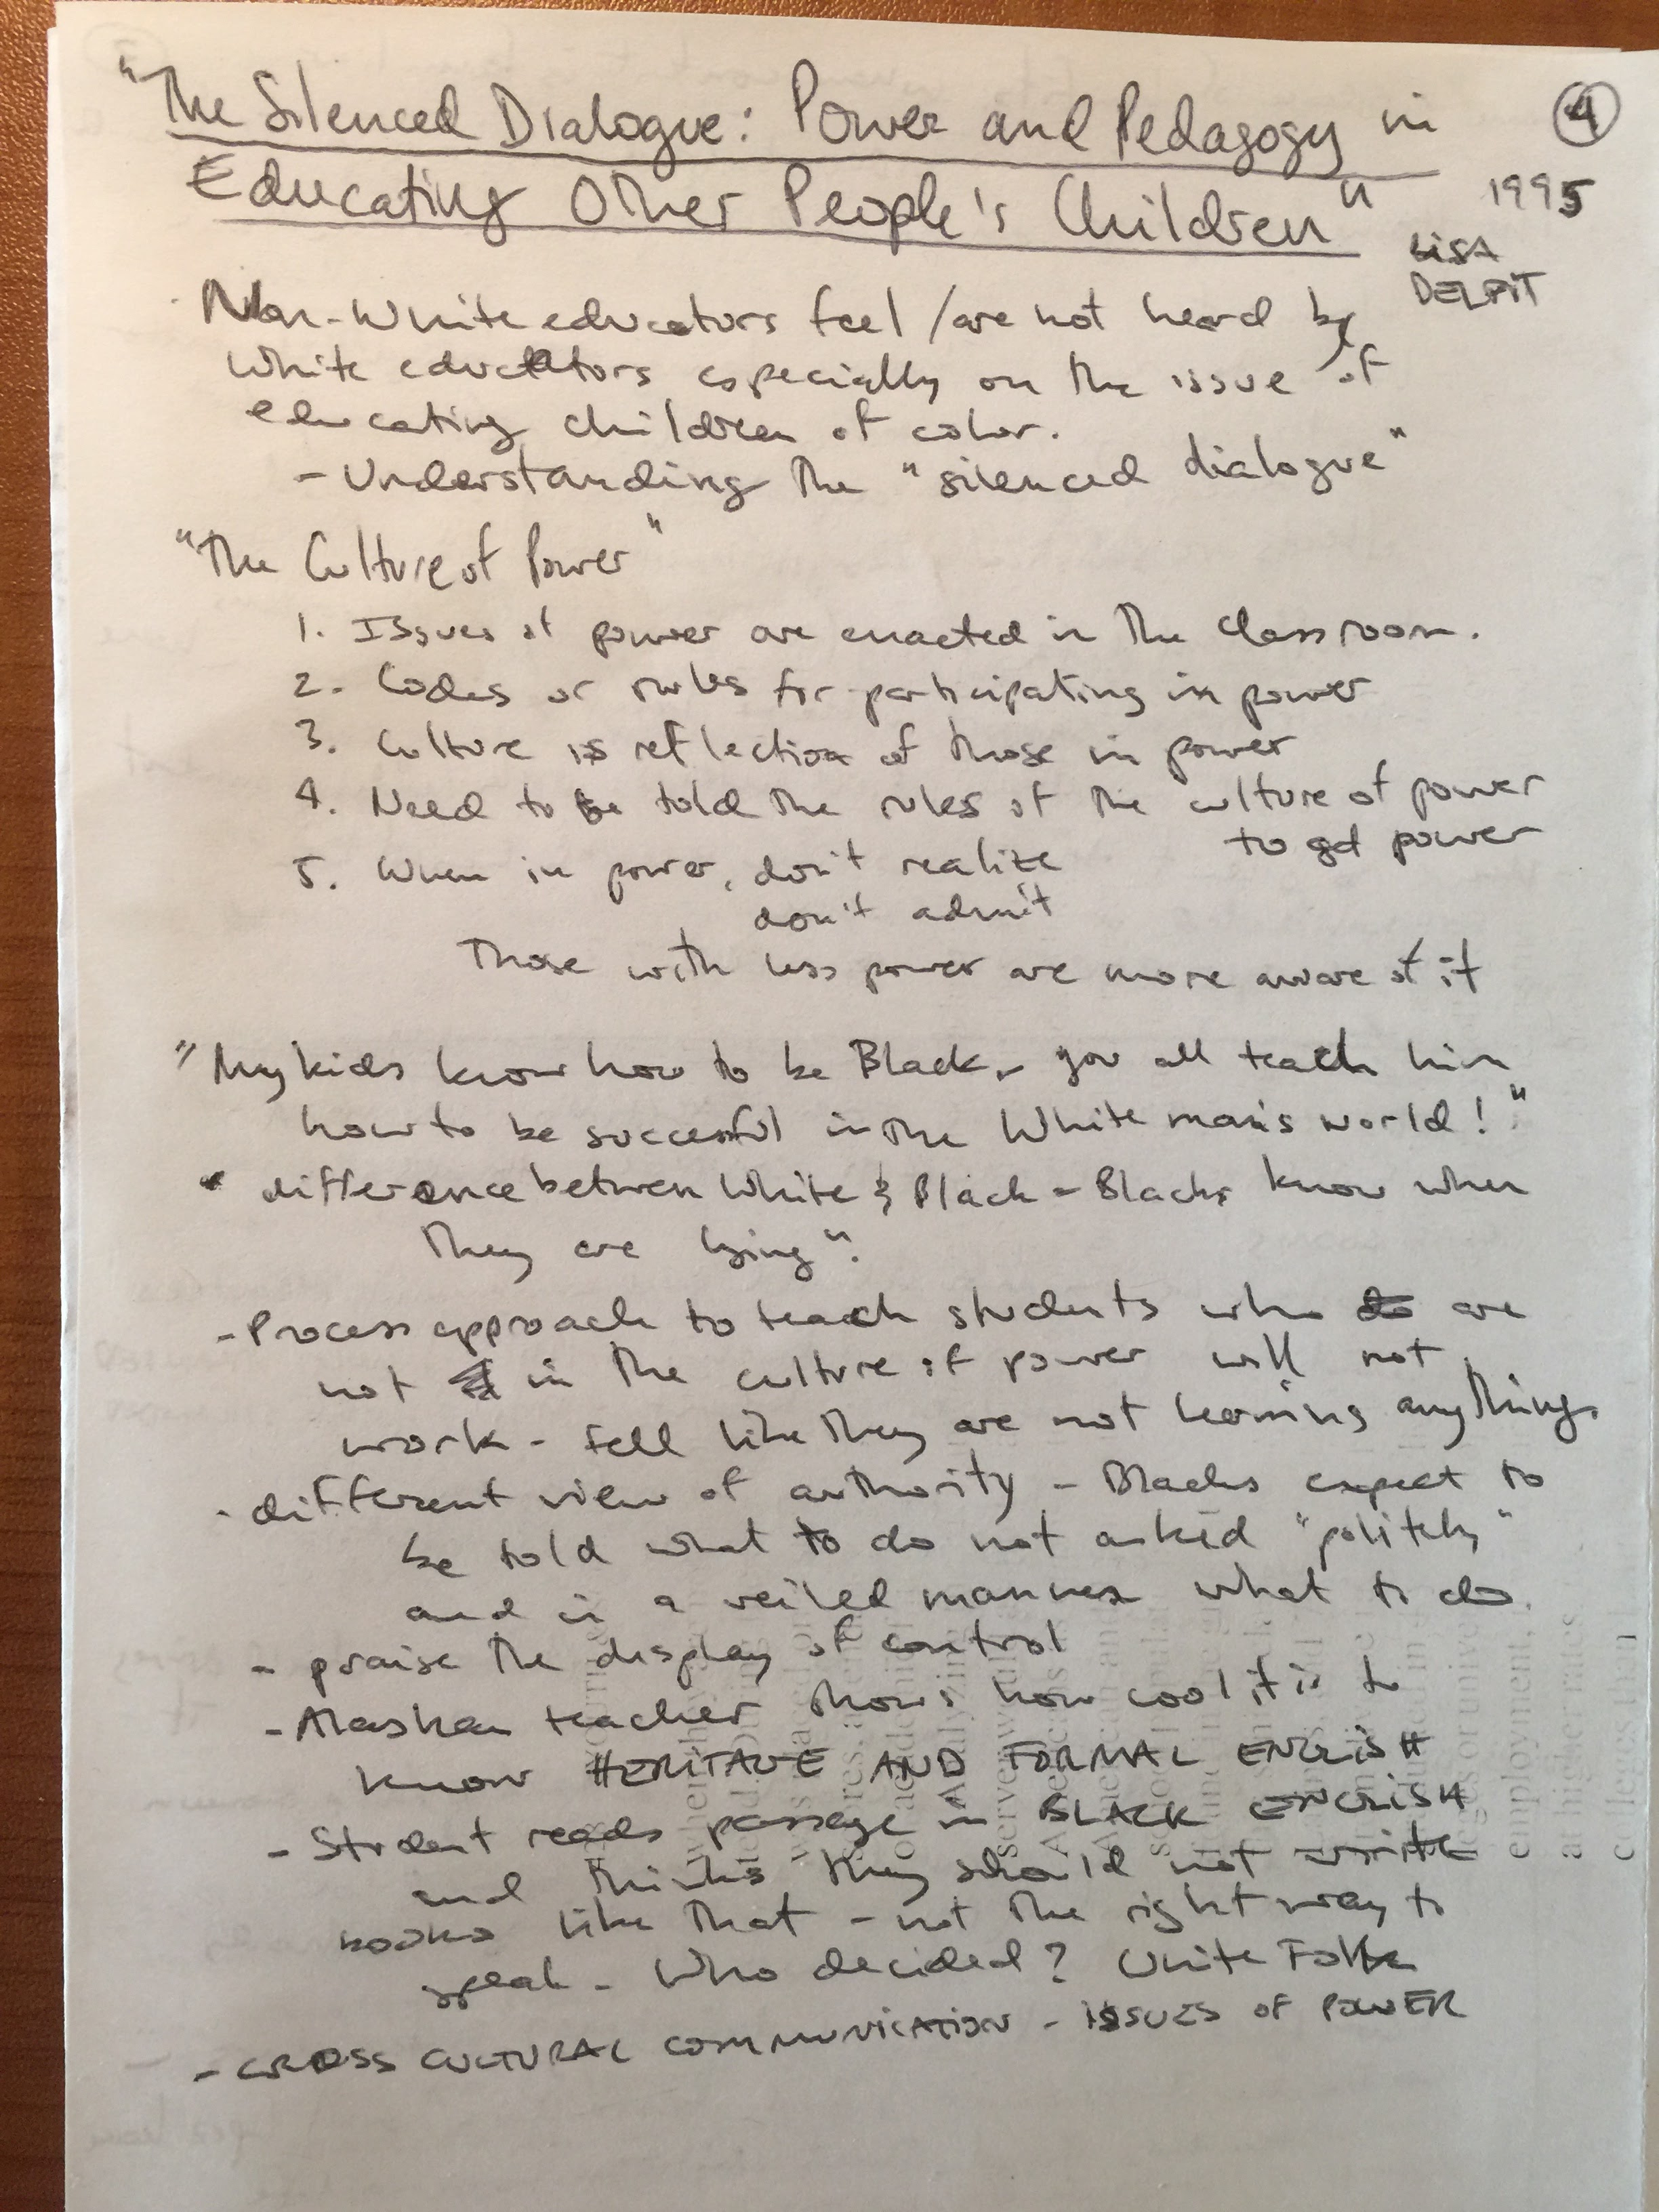 "The Silenced Dialogue: Power and Pedagogy in
Educating Other People's Children"
4
1995
LISA
DELPIT
Non-White educators feel / are not heard by
White educators especially on the issue of
educating children of color.
- Understanding the "silenced dialogue"
"The Culture of Power"
1. Issues of power are enacted in the classroom.
2. Codes or rules for participating in power
3. Culture is reflection of those in power
4. Need to be told the rules of the culture of power
to get power
5. When in power, don't realize
don't admit
Those with less power are more aware of it
"My kids know how to be Black - you all teach him
how to be successful in the White man's world!"
" difference between White & Black - Blacks know when
they are lying".
- Process approach to teach students who do are
not in the culture of power will not
work - fell like they are not learning anything.
- different view of authority - Blacks expect to
be told what to do not asked "politely"
and in a veiled manner what to do.
- praise the display of control
- Alaskan teacher shows how cool it is to
know HERITAGE AND FORMAL ENGLISH
- Student reads passage in BLACK ENGLISH
and thinks they should not write
books like that - not the right way to
speak - Who decided? White Folks
- CROSS CULTURAL COMMUNICATION - ISSUES OF POWER